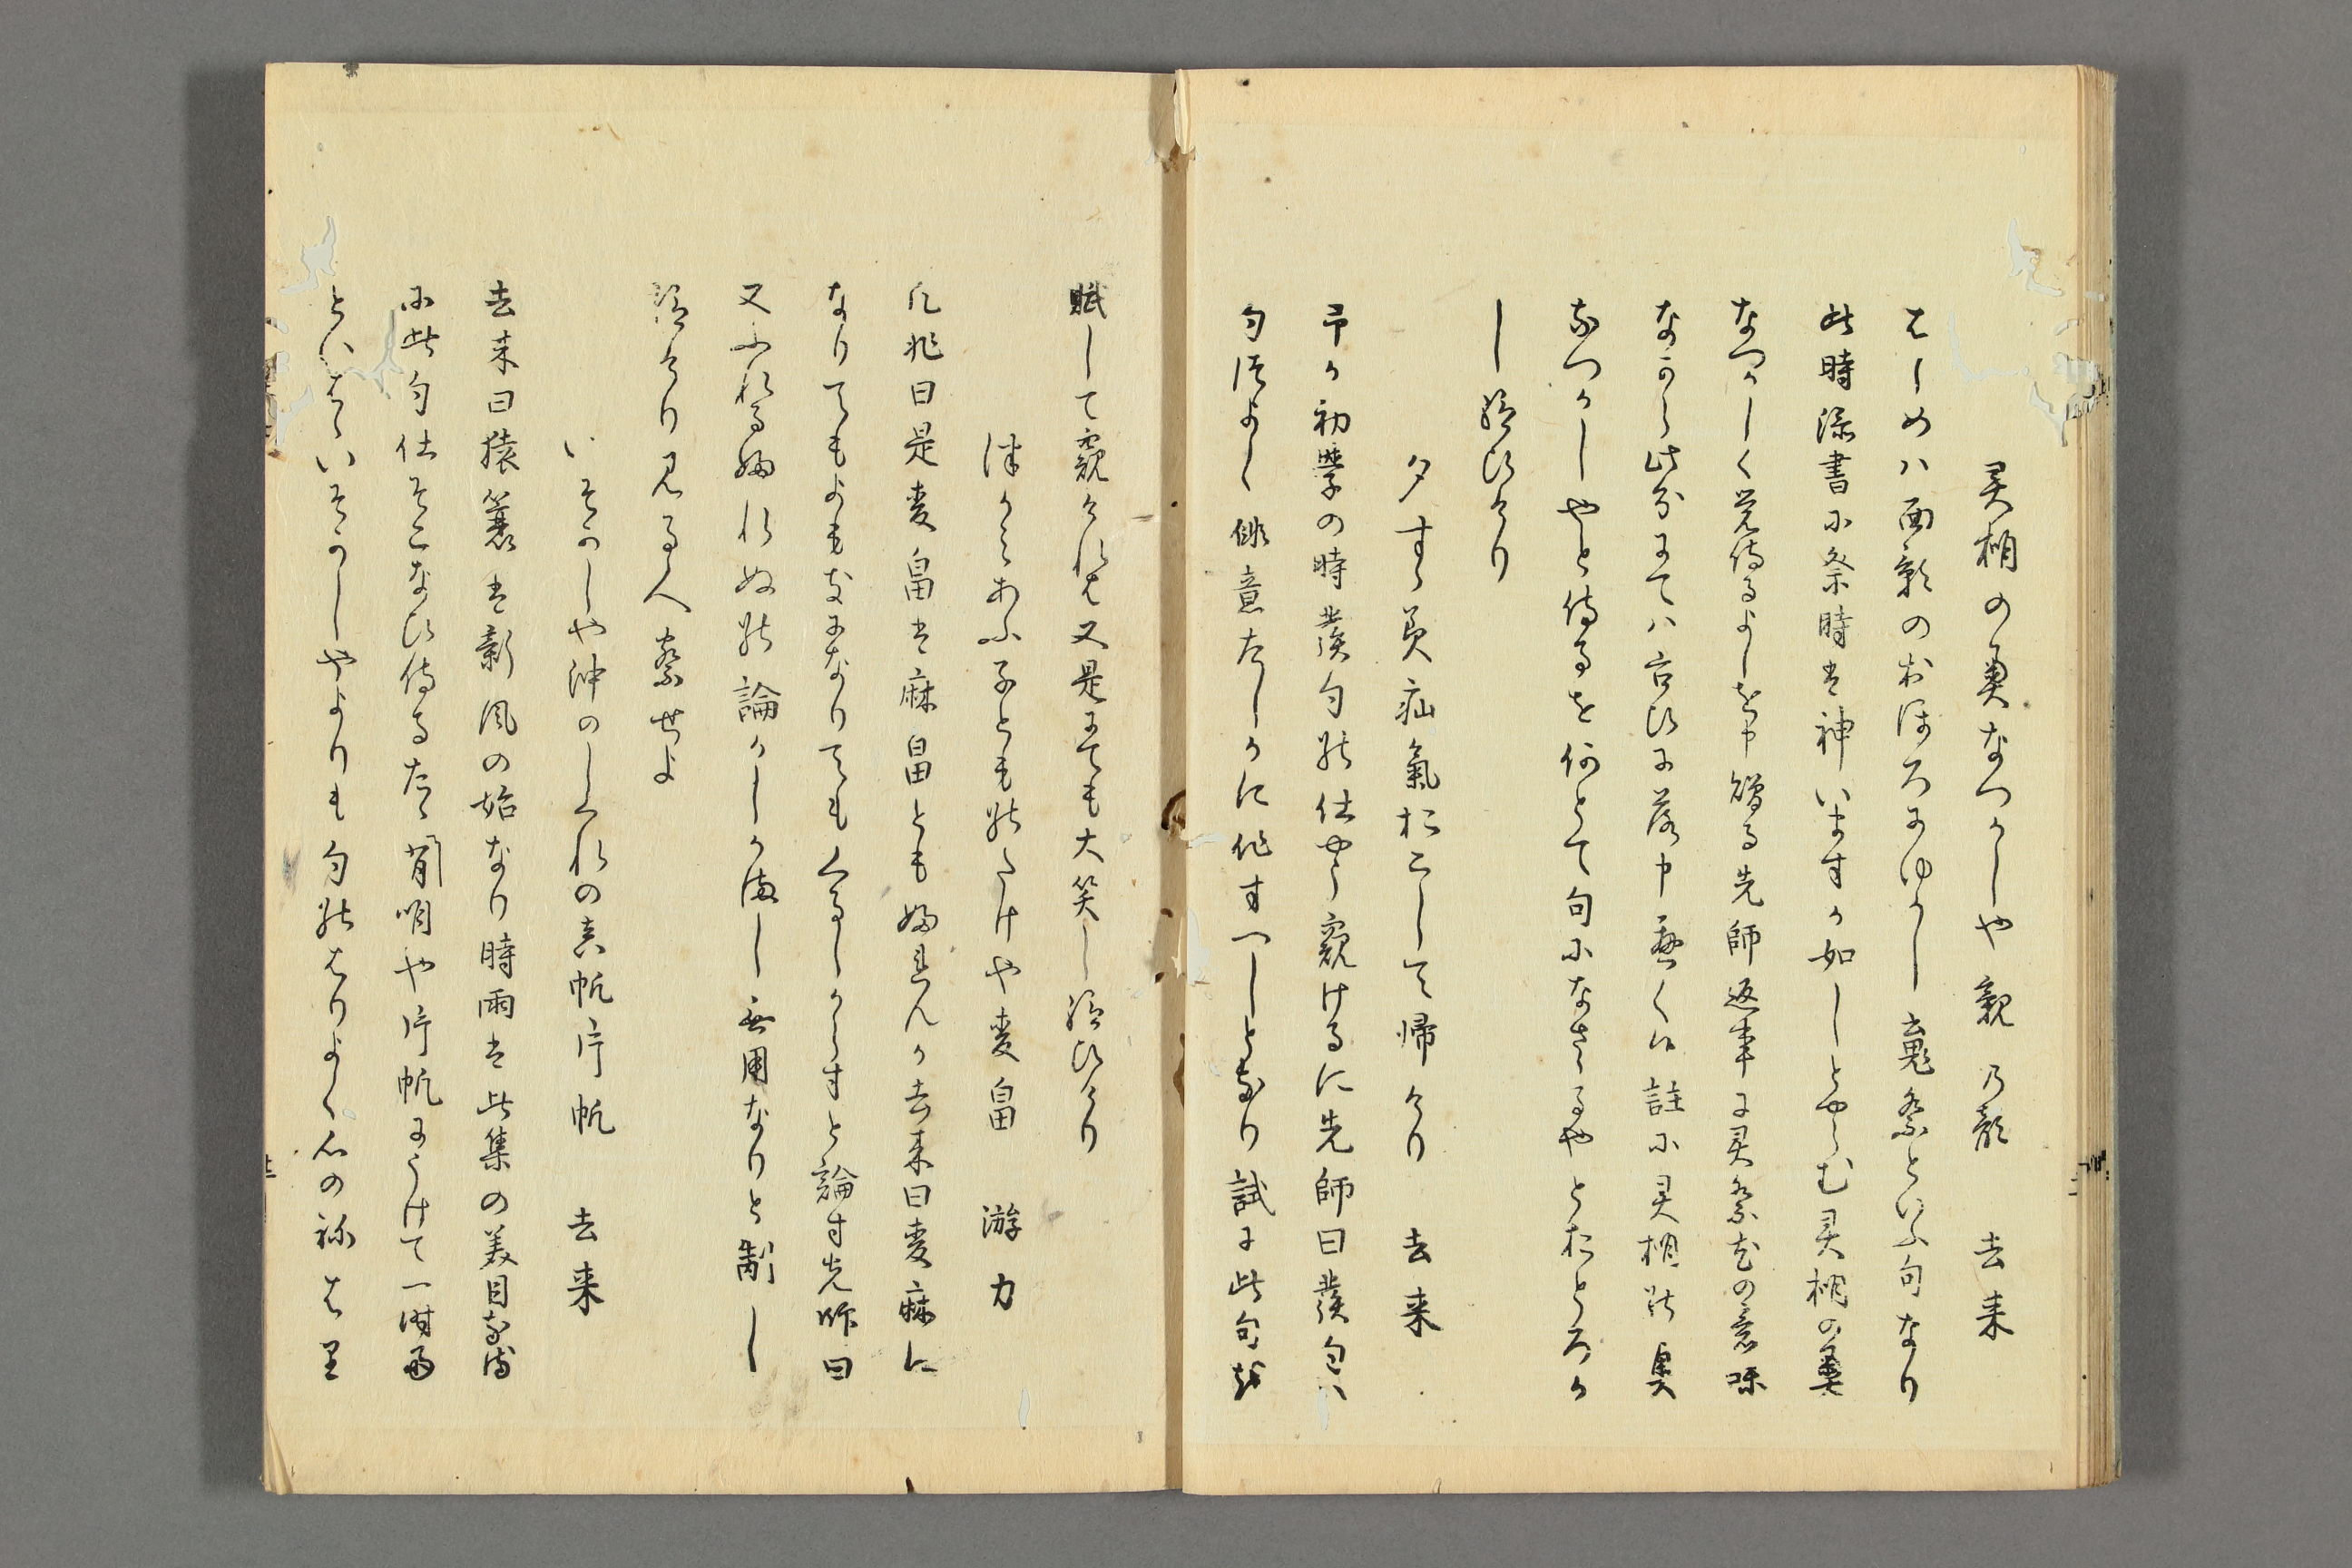 灵棚の奥なつかしや親乃顔　去来
はしめハ面影のおほろにゆかし䰟祭といふ句なり
此時添書に祭時は神いますか如しとやらむ灵棚の奥
なつかしく覚侍るよしを申贈る先師返事に灵祭尤の意味
なから此分にてハ古ひに落申へく候註に灵棚の奥
なつかしやと侍るを何とて句になささるやとおとろか
し給ひけり
夕すゝみ疝氣おこして帰けり　去来
予か初學の時發句の仕やう窺けるに先師曰發句ハ
句つよく俳意たしかに作すへしとなり試に此句を
賦して窺けれは又是にても大笑し給ひけり
つかみあふ子とものたけや麦畠　游力
凡兆曰是麦畠は麻畠とも婦れんか去来曰麦麻に
なりてもよもきになりてもくるしからすと論す先師曰
又ふれるふれぬの論かしかまし無用なりと制し
給けり見る人察せよ
いそかしや沖のしくれの真帆片帆　去来
去来曰猿簔は新風の始なり時雨は此集の美目なる
に此句仕そこなひ侍るたゝ有明や片帆にうけて一時雨
といはゝいそかしやよりも句のはりよく心のねはり